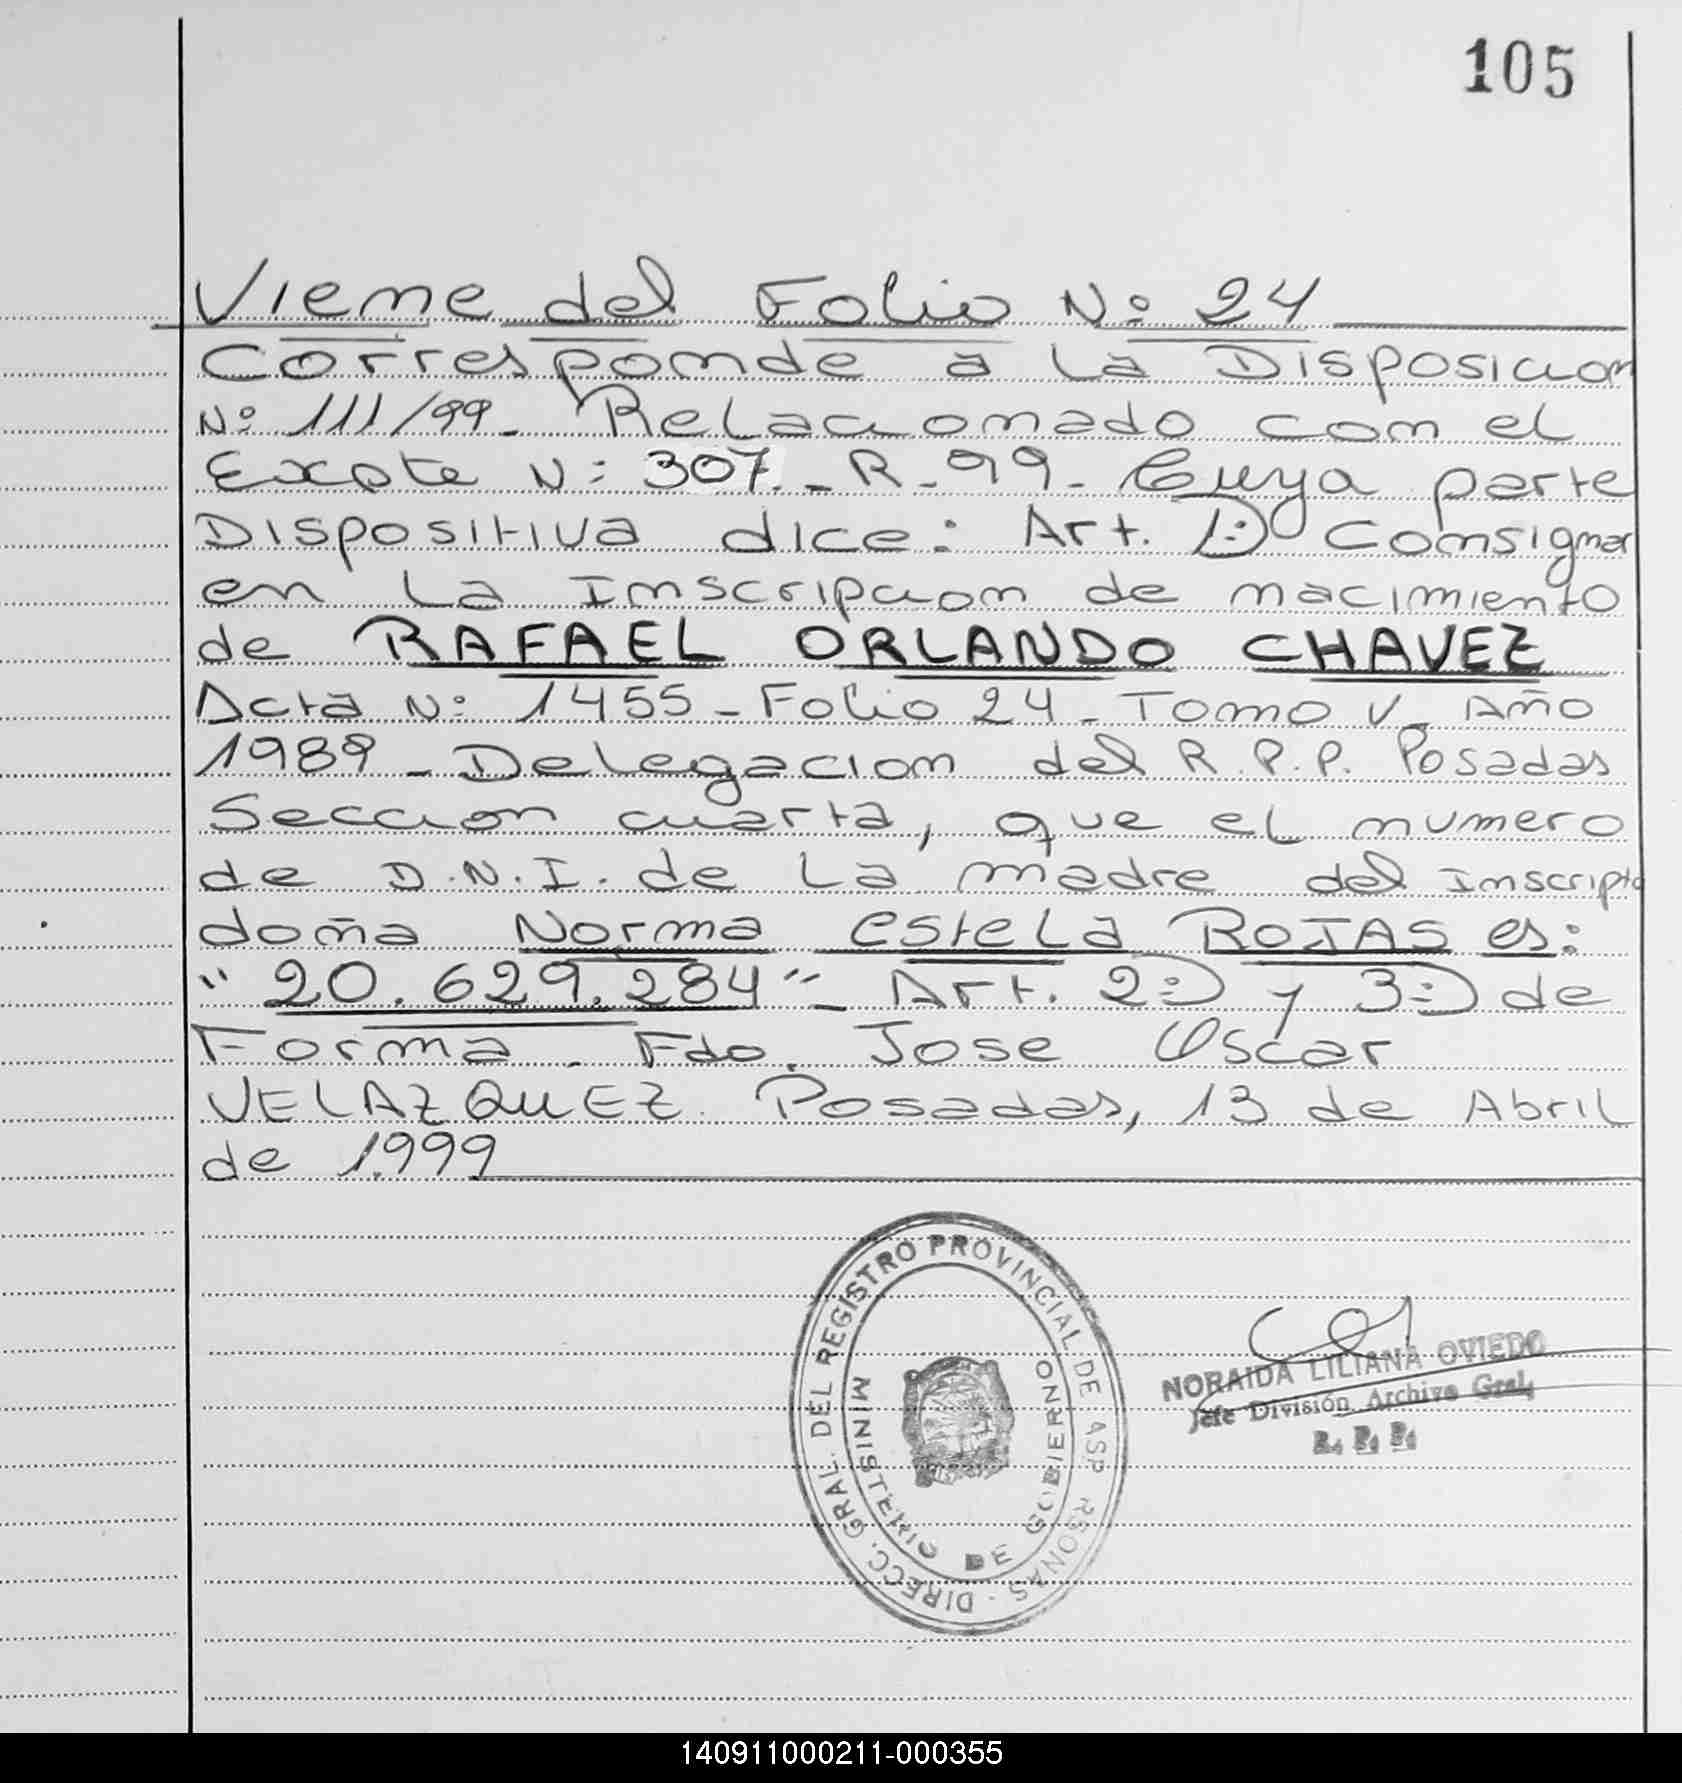 105
Viene del Folio Nº 24
Corresponde a la Disposicion
Nº 111/99. Relacionado con el
Expte Nº 307. - R - 99 - Cuya parte
Dispositiva dice: Art. 1º) Consignar
en la Inscripcion de nacimiento
de RAFAEL ORLANDO CHAVEZ
Acta Nº 1455 - Folio 24 - Tomo V - Año
1989 - Delegacion del R.P.P. Posadas
Seccion cuarta, que el numero
de D.N.I. de la madre del Inscripto
doña Norma Estela ROJAS es:
"20.629.284" - Art. 2º) y 3º) de
Forma. Fdo. Jose Oscar
VELAZQUEZ. Posadas, 13 de Abril
de 1.999
DIRECC. GRAL. DEL REGISTRO PROVINCIAL DE
MINISTERIO DE GOBIERNO
NORAIDA LILIANA OVIEDO
Jefe División Archivo Gral.
R. P. P.
140911000211-000355